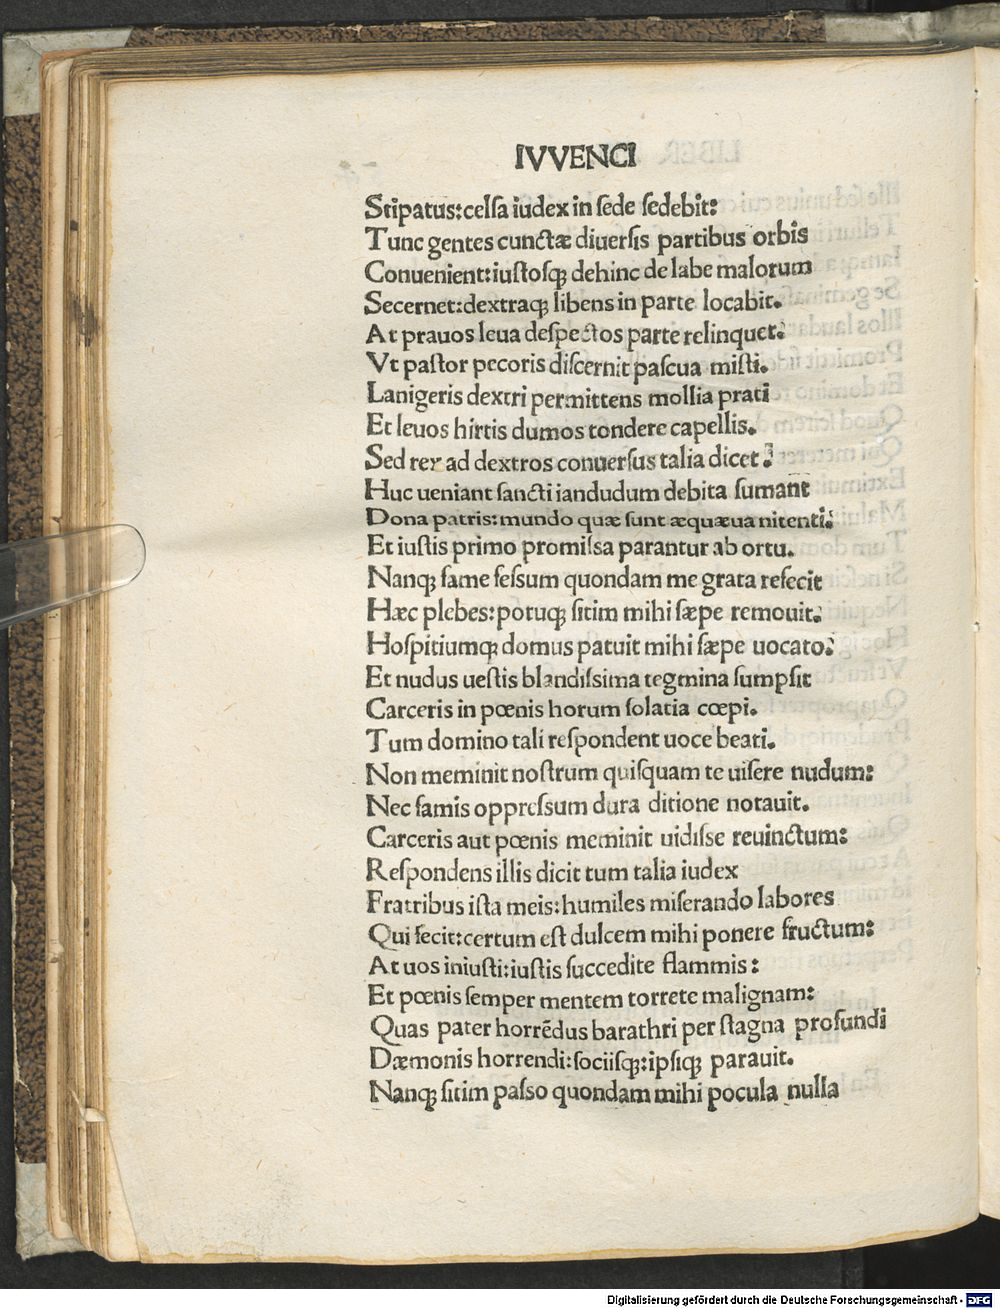 IVVENCI
Stipatus:celsa iudex in sede sedebit:
Tunc gentes cunctæ diuersis partibus orbis
Conuenient:iustosꝗ dehinc de labe malorum
Secernet:dextraꝗ libens in parte locabit.
At prauos leua despectos parte relinquet:
Vt pastor pecoris discernit pascua misti.
Lanigeris dextri permittens mollia prati
Et leuos hirtis dumos tondere capellis.
Sed rex ad dextros conuersus talia dicet:
Huc ueniant sancti iandudum debita sumant
Dona patris:mundo quæ sunt æquæua nitenti:
Et iustis primo promissa parantur ab ortu.
Nanꝗ fame fessum quondam me grata refecit
Hæc plebes:potuꝗ sitim mihi sæpe remouit:
Hospitiumꝗ domus patuit mihi sæpe uocato:
Et nudus uestis blandissima tegmina sumpsit
Carceris in pœnis horum solatia cœpi.
Tum domino tali respondent uoce beati.
Non meminit nostrum quisquam te uisere nudum:
Nec famis oppressum dura ditione notauit.
Carceris aut pœnis meminit uidisse reuinctum:
Respondens illis dicit tum talia iudex
Fratribus ista meis:humiles miserando labores
Qui fecit:certum est dulcem mihi ponere fructum:
At uos iniusti:iustis succedite flammis:
Et pœnis semper mentem torrete malignam:
Quas pater horrẽdus barathri per stagna profundi
Dæmonis horrendi:sociisꝗ:ipsiꝗ parauit.
Nanꝗ sitim passo quondam mihi pocula nulla
Digitalisierung gefördert durch die Deutsche Forschungsgemeinschaft - DFG